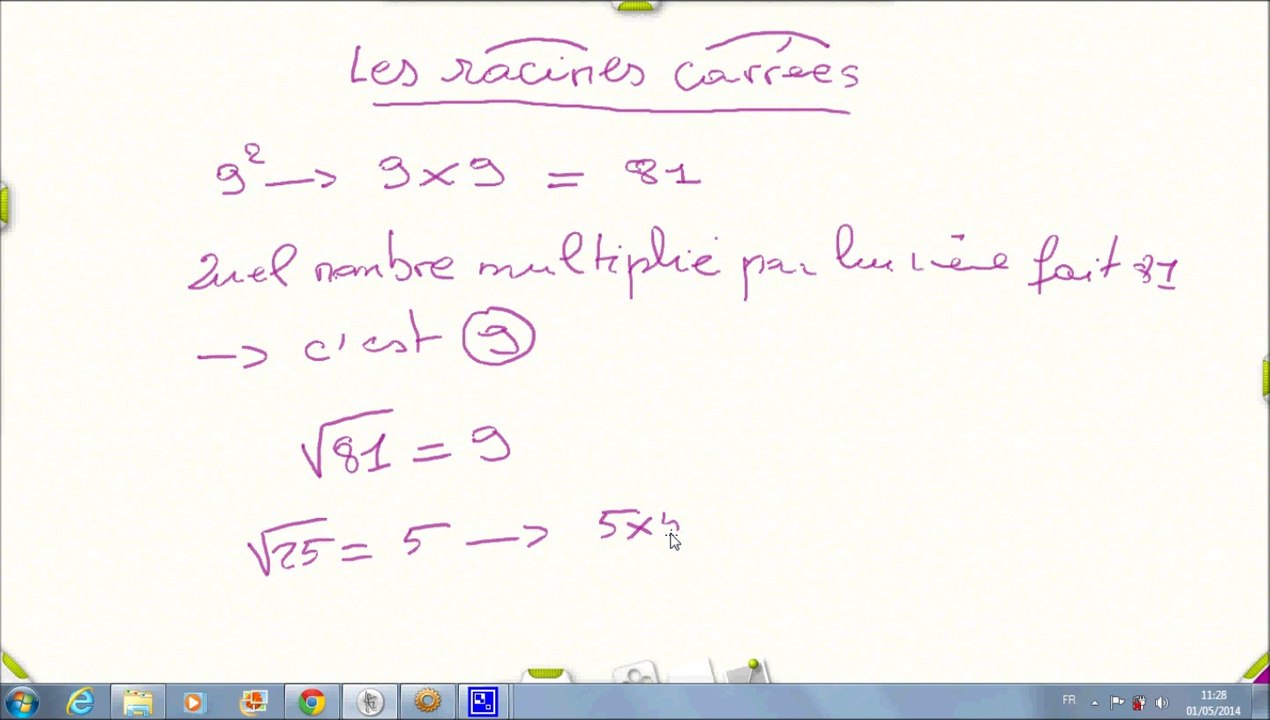 Les racines carrées
9² → 9×9 = 81
Quel nombre multiplié par lui même fait 81
→ c'est 9
√81 = 9
√25 = 5 → 5×5
FR
11:28
01/05/2014